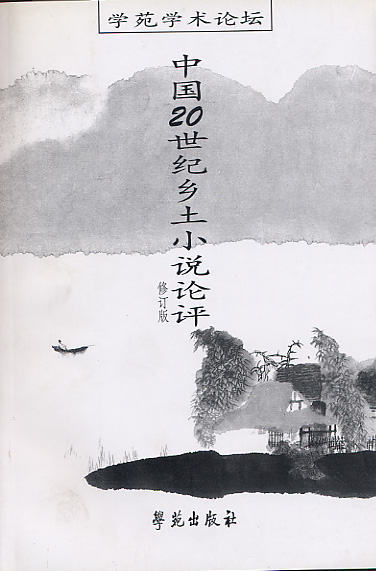 学苑学术论坛
中国20世纪乡土小说论评
修订版
學苑出版社